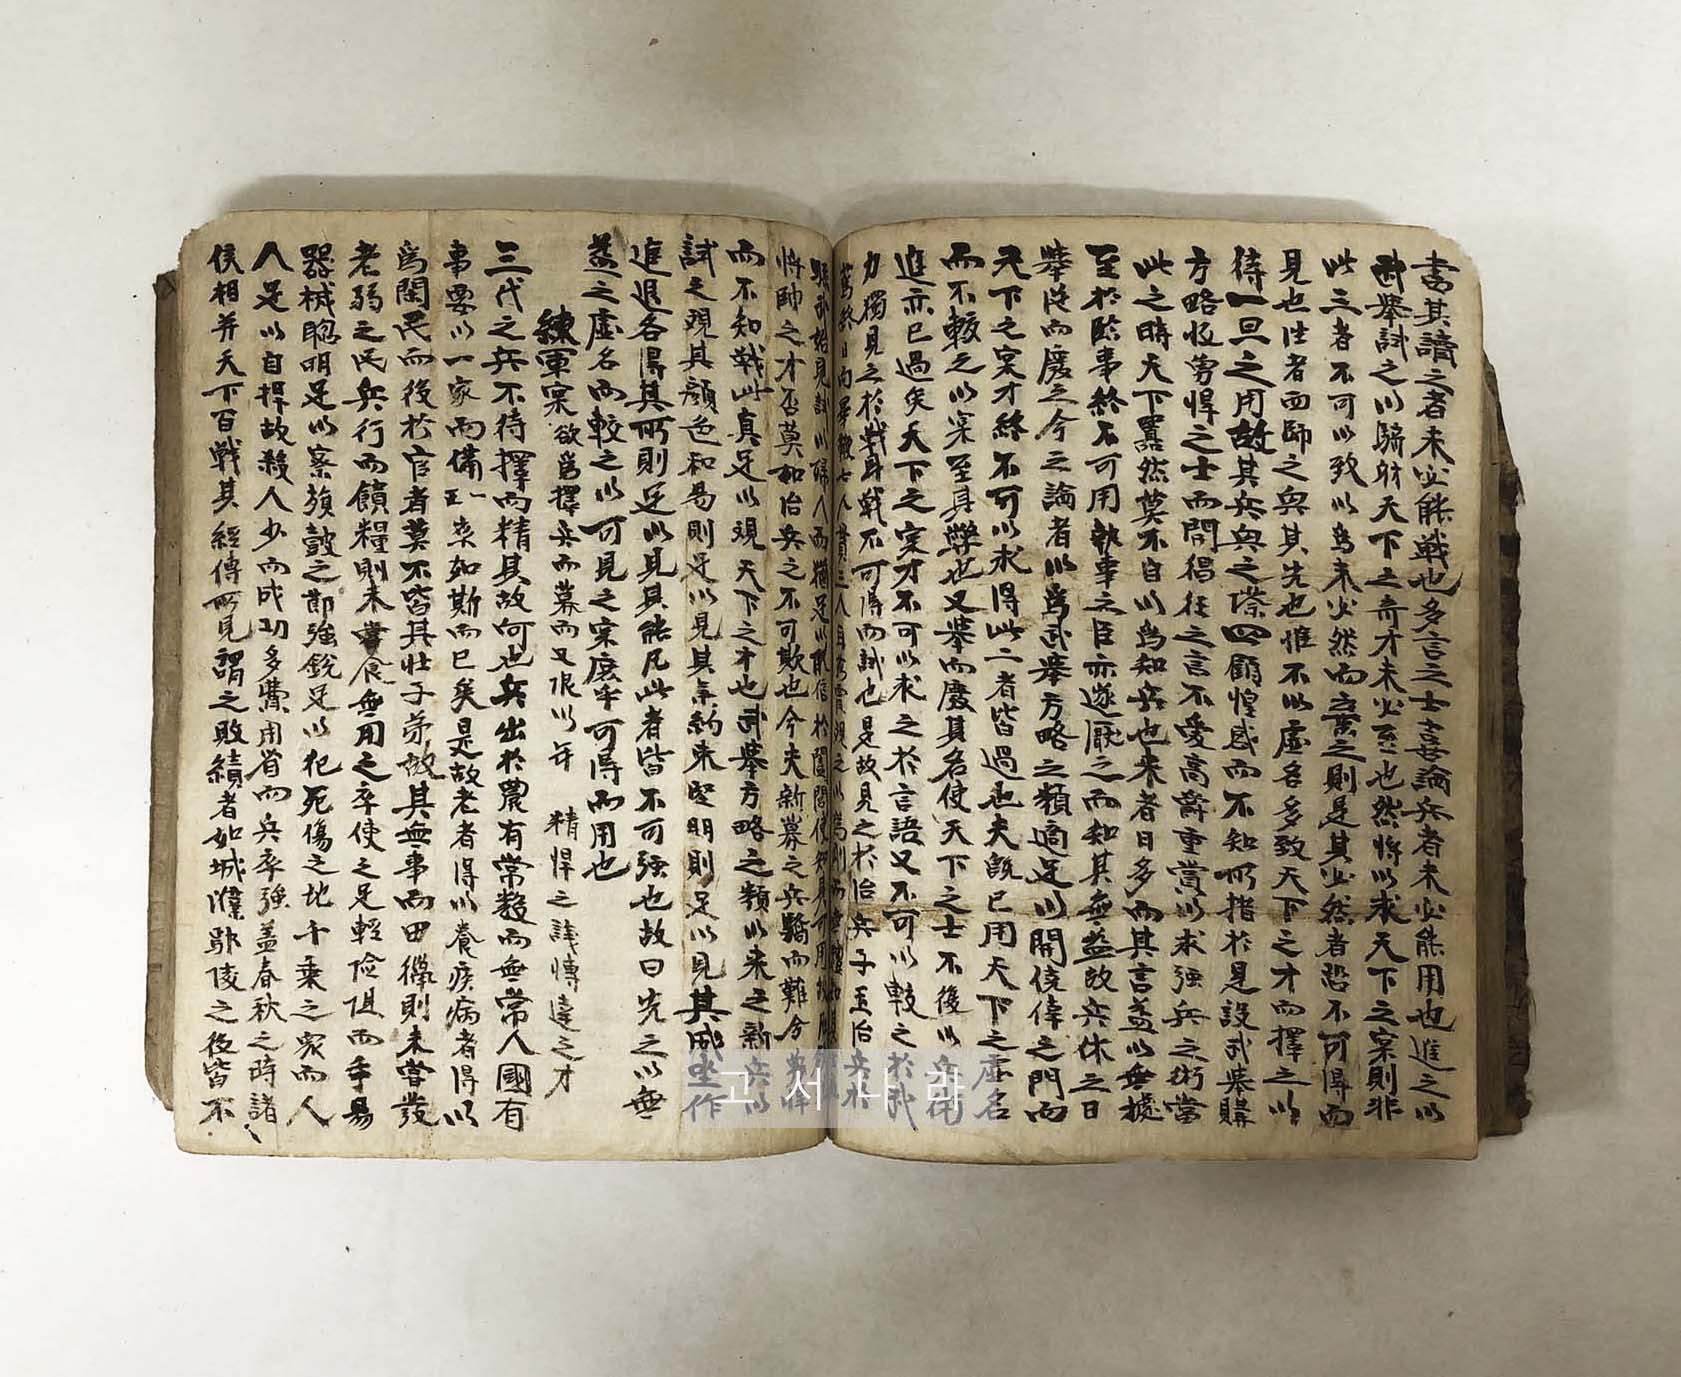 書其讀之者未必能戰也多言之士喜論兵者未必能用也進之以
武舉試之以騎射天下之奇才未必至也然將以求天下之宲則非
此三者不可以致以爲未必然而棄之則是其必然者恐不可得而
見也往者西師之興其先也惟不以虛名多致天下之才而擇之以
待一旦之用故其兵興之際四顧惶惑而不知所措於是設武舉購
方略收勇悍之士而開猖狂之言不愛高爵重賞以求强兵之術當
此之時天下囂然莫不自以爲知兵也来者日多而其言益以無據
至於臨事終不可用執事之臣亦遂厭之而知其無益故兵休之日
舉從而廢之今之論者以爲武舉方略之類適足以開僥倖之門而
天下之宲才終不可以求得此二者皆過也夫旣已用天下之虛名
而不較之以宲至其弊也又舉而廢其名使天下之士不復以兵術
進亦已過矣天下之宲才不可以求之於言語又不可以較之於武
力獨見之於戰耳戰不可得而試也是故見之於治兵子玉治兵於
蔿終日而畢鞭七人貫三人耳蔿賈觀之以爲剛而無禮知其
孫武始見試以婦人而猶足以取信於闔閭使知其可用故凡
將帥之才否莫如治兵之不可欺也今夫新募之兵驕而難令勇悍
而不知戰此真足以觀天下之才也武舉方略之類以来之新兵以
試之觀其顔色和易則足以見其氣約束堅明則足以見其威坐作
進退各得其所則足以見其能凡此者皆不可强也故曰先之以無
益之虛名而較之以可見之宲庶乎可得而用也
練軍宲 欲爲擇兵而募而又限以年 精悍之識博達之才
三代之兵不待擇而精其故何也兵出於農有常數而無常人國有
事要以一家而備一正卒如斯而已矣是故老者得以養疾病者得以
爲閑民而役於官者莫不皆其壮子弟故其無事而田獵則未嘗發
老弱之民兵行而饋糧則未嘗食無用之卒使之足輕險阻而手易
器械聰明足以察旗鼓之節强銳足以犯死傷之地千乘之衆而人
人足以自捍故殺人少而成功多費用省而兵卒强盖春秋之時諸
侯相并天下百戰其經傳所見謂之敗績者如城濮鄢陵之役皆不
고서나라